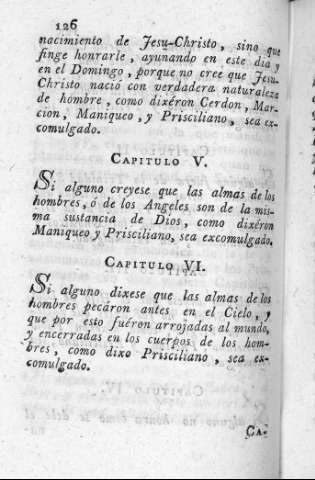 126
nacimiento de Jesu-Christo, sino que
finge honrarle, ayunando en este dia y
en el Domingo, porque no cree que Jesu-
Christo nació con verdadera naturaleza
de hombre, como dixéron Cerdon, Mar-
cion, Maniqueo, y Prisciliano, sea ex-
comulgado.
CAPITULO V.
Si alguno creyese que las almas de los
hombres, ó de los Angeles son de la mis-
ma sustancia de Dios, como dixéron
Maniqueo y Prisciliano, sea excomulgado.
CAPITULO VI.
Si alguno dixese que las almas de los
hombres pecáron antes en el Cielo, y
que por esto fuéron arrojadas al mundo,
y encerradas en los cuerpos de los hom-
bres, como dixo Prisciliano, sea ex-
comulgado.
CA-